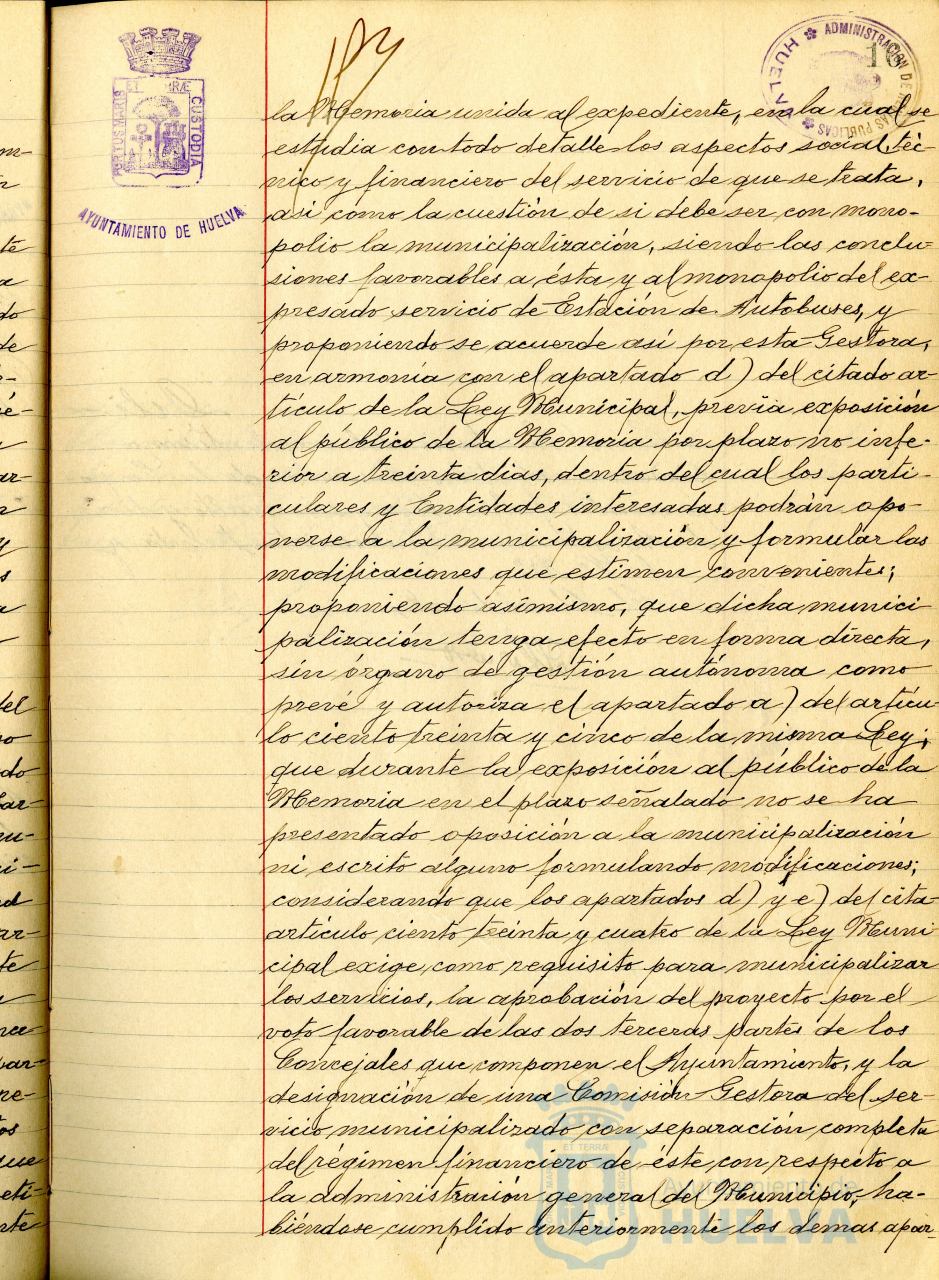 ET TERRÆ
PORTUS MARIS
CUSTODIA
AYUNTAMIENTO DE HUELVA
ADMINISTRACION DE
PUBLICAS
HUELVA
16
la Memoria unida al expediente, en la cual se
estudia con todo detalle los aspectos social, téc-
nico y financiero del servicio de que se trata,
así como la cuestión de si debe ser con mono-
polio la municipalización, siendo las conclu-
siones favorables a ésta y al monopolio del ex-
presado servicio de Estación de Autobuses, y
proponiendo se acuerde así por esta Gestora,
en armonía con el apartado d) del citado ar-
tículo de la Ley Municipal, previa exposición
al público de la Memoria por plazo no infe-
rior a treinta dias, dentro del cual los parti-
culares y Entidades interesadas podrán opo-
nerse a la municipalización y formular las
modificaciones que estimen convenientes;
proponiendo asímismo, que dicha munici
palización tenga efecto en forma directa,
sín órgano de gestión autónoma como
prevé y autoriza el apartado a) del artícu-
lo ciento treinta y cinco de la misma Ley;
que durante la exposición al público de la
Memoria en el plazo señalado no se ha
presentado oposición a la municipalización
ni escrito alguno formulando modificaciones;
considerando que los apartados d) y e) del cita-
artículo ciento treinta y cuatro de la Ley Muni
cipal exige como requisito para municipalizar
los servicios, la aprobación del proyecto por el
voto favorable de las dos terceras partes de los
Concejales que componen el Ayuntamiento, y la
designación de una Comisión Gestora del ser-
vicio municipalizado con separación completa
del régimen financiero de éste con respecto a
la administración general del Municipio; ha-
biéndose cumplido anteriormente los demas apar-
Ayuntamiento de
HUELVA